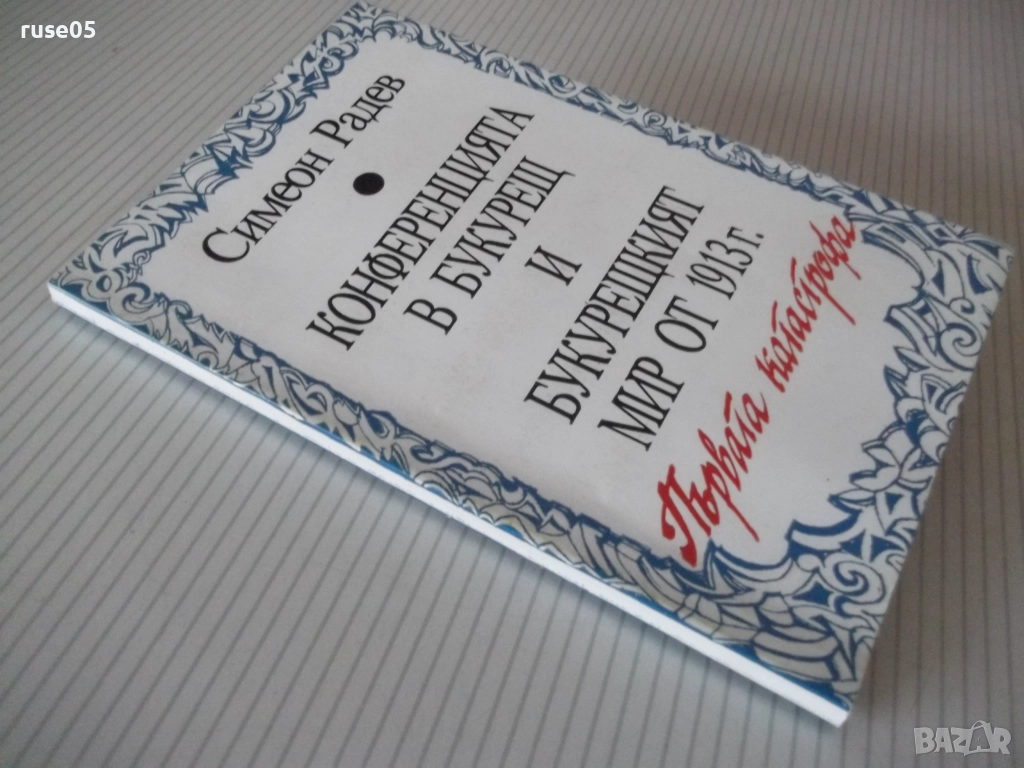 ruse05
Симеон Радев
КОНФЕРЕНЦИЯТА
В БУКУРЕЩ
И
БУКУРЕЩКИЯТ
МИР ОТ 1913 г.
Първата катастрофа
BAZAR